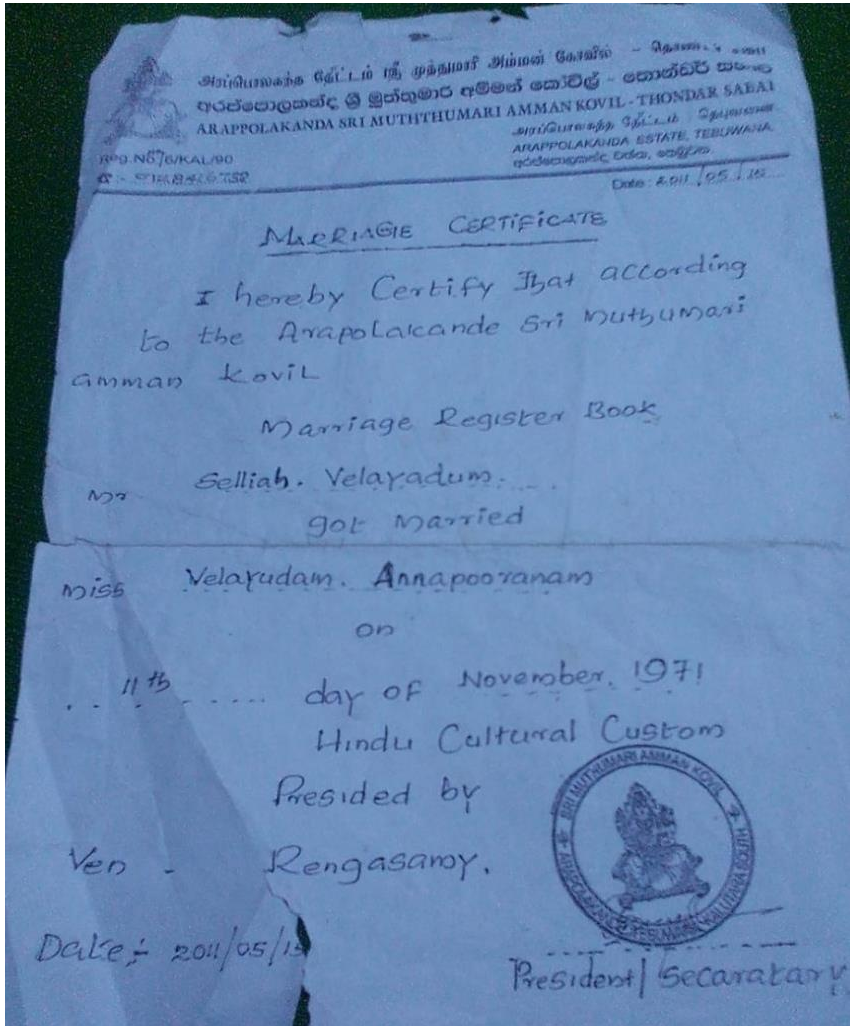 அரப்பொலகந்த தோட்டம் ஸ்ரீ முத்துமாரி அம்மன் கோவில் -
ශ්‍රී මුත්තුමාරි අම්මන් කෝවිල් -
ARAPPOLAKANDA SRI MUTHTHUMARI AMMAN KOVIL - THONDAR SABAI
அரப்பொலகந்த தோட்டம் - தெபுவானை
ARAPPOLAKANDA ESTATE, TEBUWANA.
Reg.No 76/KAL/90
Date : 2011/05/15
MARRIAGE CERTIFICATE
I hereby Certify That according
to the Arapolakande Sri Muthumari
amman Kovil
Marriage Register Book
Mr Selliah. Velayadum.
got Married
Miss Velayudam. Annapooranam
on
11th day of November. 1971
Hindu Cultural Custom
Presided by
Ven - Rengasamy.
SRI MUTHUMARI AMMAN KOVIL
Date:- 2011/05/15
President/Secaratary